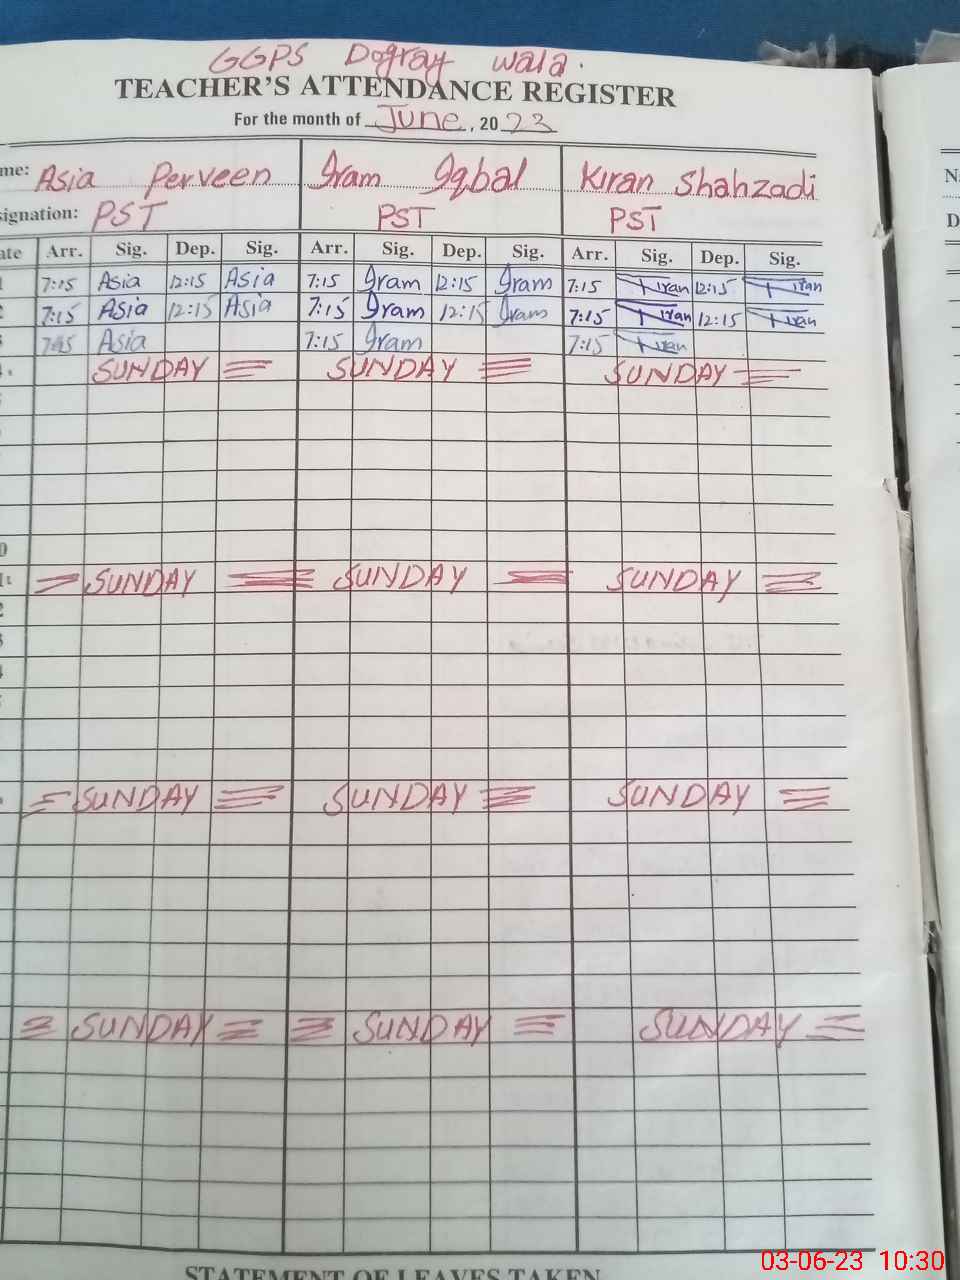 GGPS Dogray wala.
TEACHER'S ATTENDANCE REGISTER
For the month of June, 2023
me: Asia Perveen Iram Iqbal Kiran Shahzadi
signation: PST PST PST
ate Arr. Sig. Dep. Sig. Arr. Sig. Dep. Sig. Arr. Sig. Dep. Sig.
1 7:15 Asia 12:15 Asia 7:15 Iram 12:15 Iram 7:15 Kiran 12:15 Kiran
2 7:15 Asia 12:15 Asia 7:15 Iram 12:15 Iram 7:15 Kiran 12:15 Kiran
3 7:15 Asia 7:15 Iram 7:15 Kiran
SUNDAY SUNDAY SUNDAY
0
1 SUNDAY SUNDAY SUNDAY
2
3
4
SUNDAY SUNDAY SUNDAY
SUNDAY SUNDAY SUNDAY
STATEMENT OF LEAVES TAKEN
N
D
03-06-23 10:30